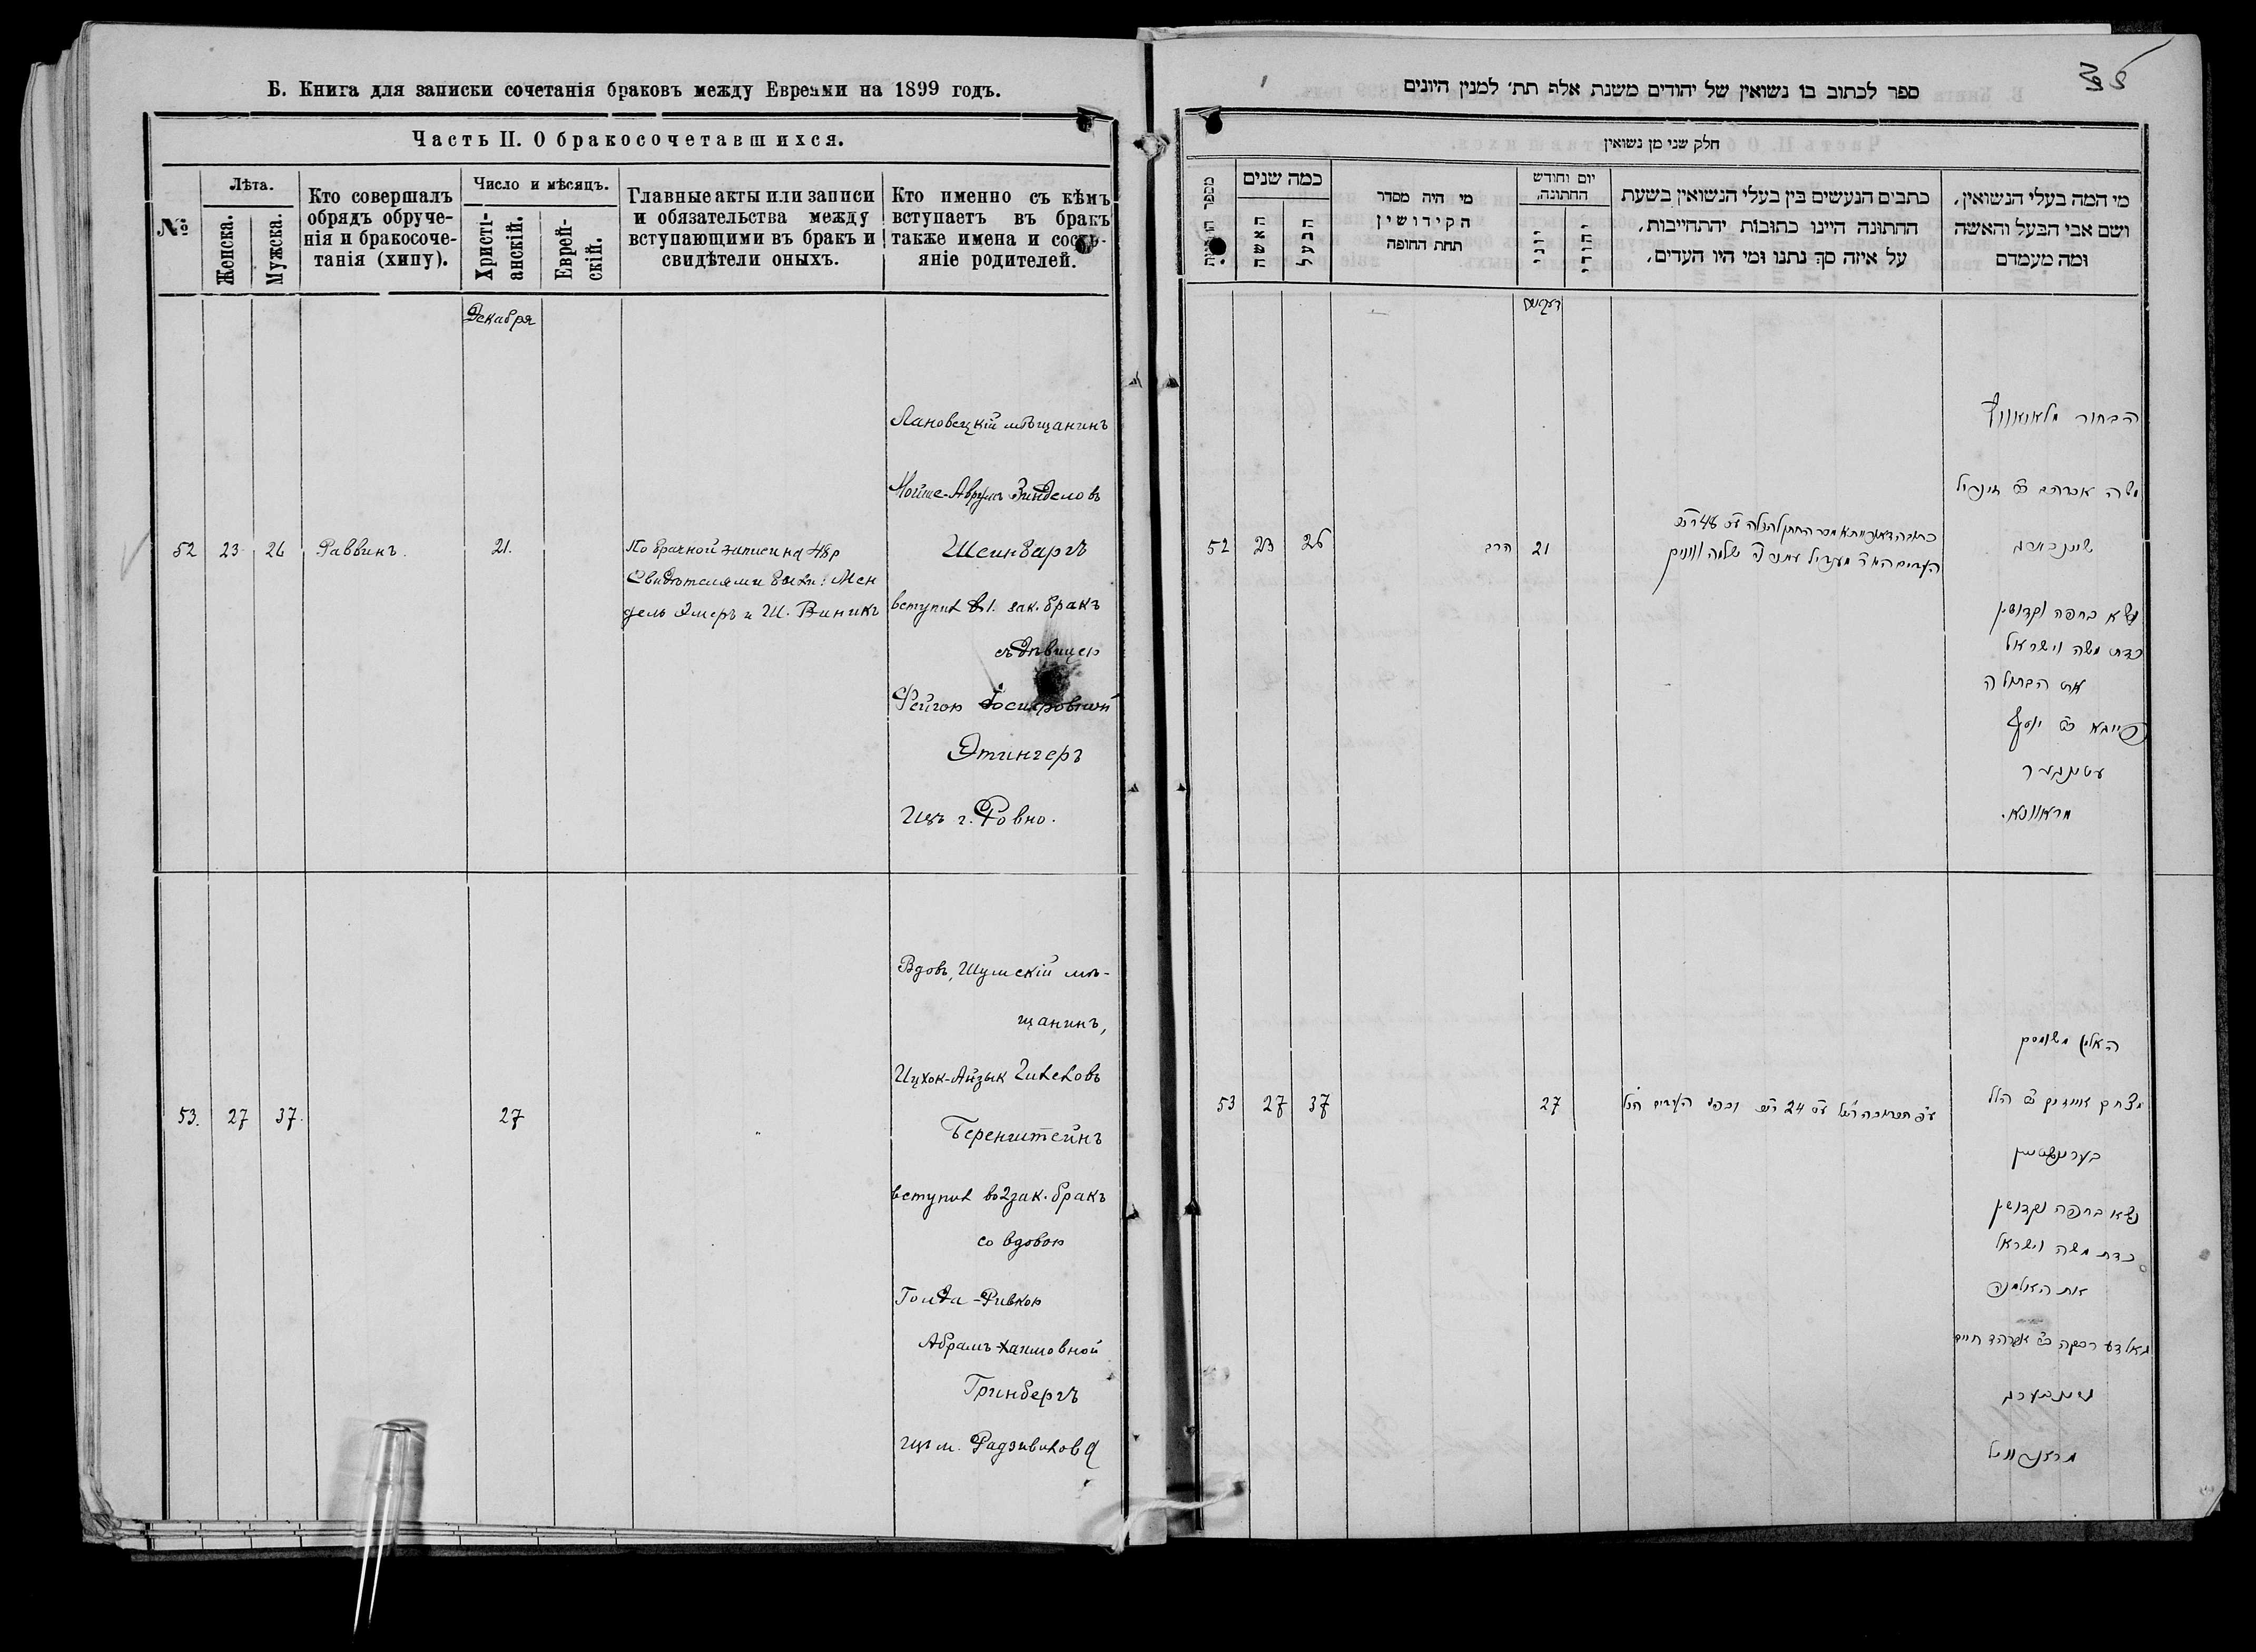 Б. Книга для записки сочетанія браковъ между Евреями на 1899 годъ.
Часть II. О бракосочетавшихся.
№
Лѣта.
Женска.
Мужска.
Кто совершалъ
обрядъ обруче-
нія и бракосоче-
танія (хипу).
Число и мѣсяцъ.
Христі-
анскій.
Еврей-
скій.
Главные акты или записи
и обязательства между
вступающими въ бракъ и
свидѣтели оныхъ.
Кто именно съ кѣмъ
вступаетъ въ бракъ
также имена и состо-
яніе родителей.
Декабря
52
23
26
Раввинъ.
21.
По брачной записи на 48 р
Свидѣтелями были: Мен
дель Эмеръ и Ш. Виникъ
Лановецкій мѣщанинъ
Мойше-Аврумъ Зинделовъ
Шейнбаргъ
вступил в 1. зак. бракъ
съ дѣвицею
Фейгою Іосиповной
Этингеръ
изъ г. Ровно.
53.
27
37.
27
"
Вдовъ, Шумскій мѣ-
щанинъ,
Ицхок-Айзык Гилеловъ
Беренштейнъ
вступил во 2 зак. бракъ
со вдовою
Голда-Ривкою
Абрамъ-Хаимовной
Гринбергъ
изъ м. Радзивилова
35
ספר לכתוב בו נשואין של יהודים משנת אלף תת׳ למנין היונים
חלק שני מן נשואין
מספר
כמה שנים
האשה
הבעל
מי היה מסדר
הקידושין
תחת החופה
יום וחודש
החתונה,
יווני
יהודי
כתבים הנעשים בין בעלי הנשואין בשעת
החתונה היינו כתובות יהתחייבות,
על איזה סך נתנו ומי היו העדים,
מי המה בעלי הנשואין,
ושם אבי הבעל והאשה
ומה מעמדם
52
23
26
הרב
21
הבחור מלאנאוויץ
משה אברהם ב״ר זינדיל
שיינבארג
נשא בחפה וקדושין
כדת משה וישראל
את הבתולה
פייגא ב״ר יוסף
עטינגער
מראוונא.
53
27
37
27
האלמן משומסק
יצחק אייזיק ב״ר הלל
בערינשטיין
נשא בחפה וקדושין
כדת משה וישראל
את האלמנה
גאלדע רבקה ב״ר אברהם חיים
גרינבערג
מראדזוויל